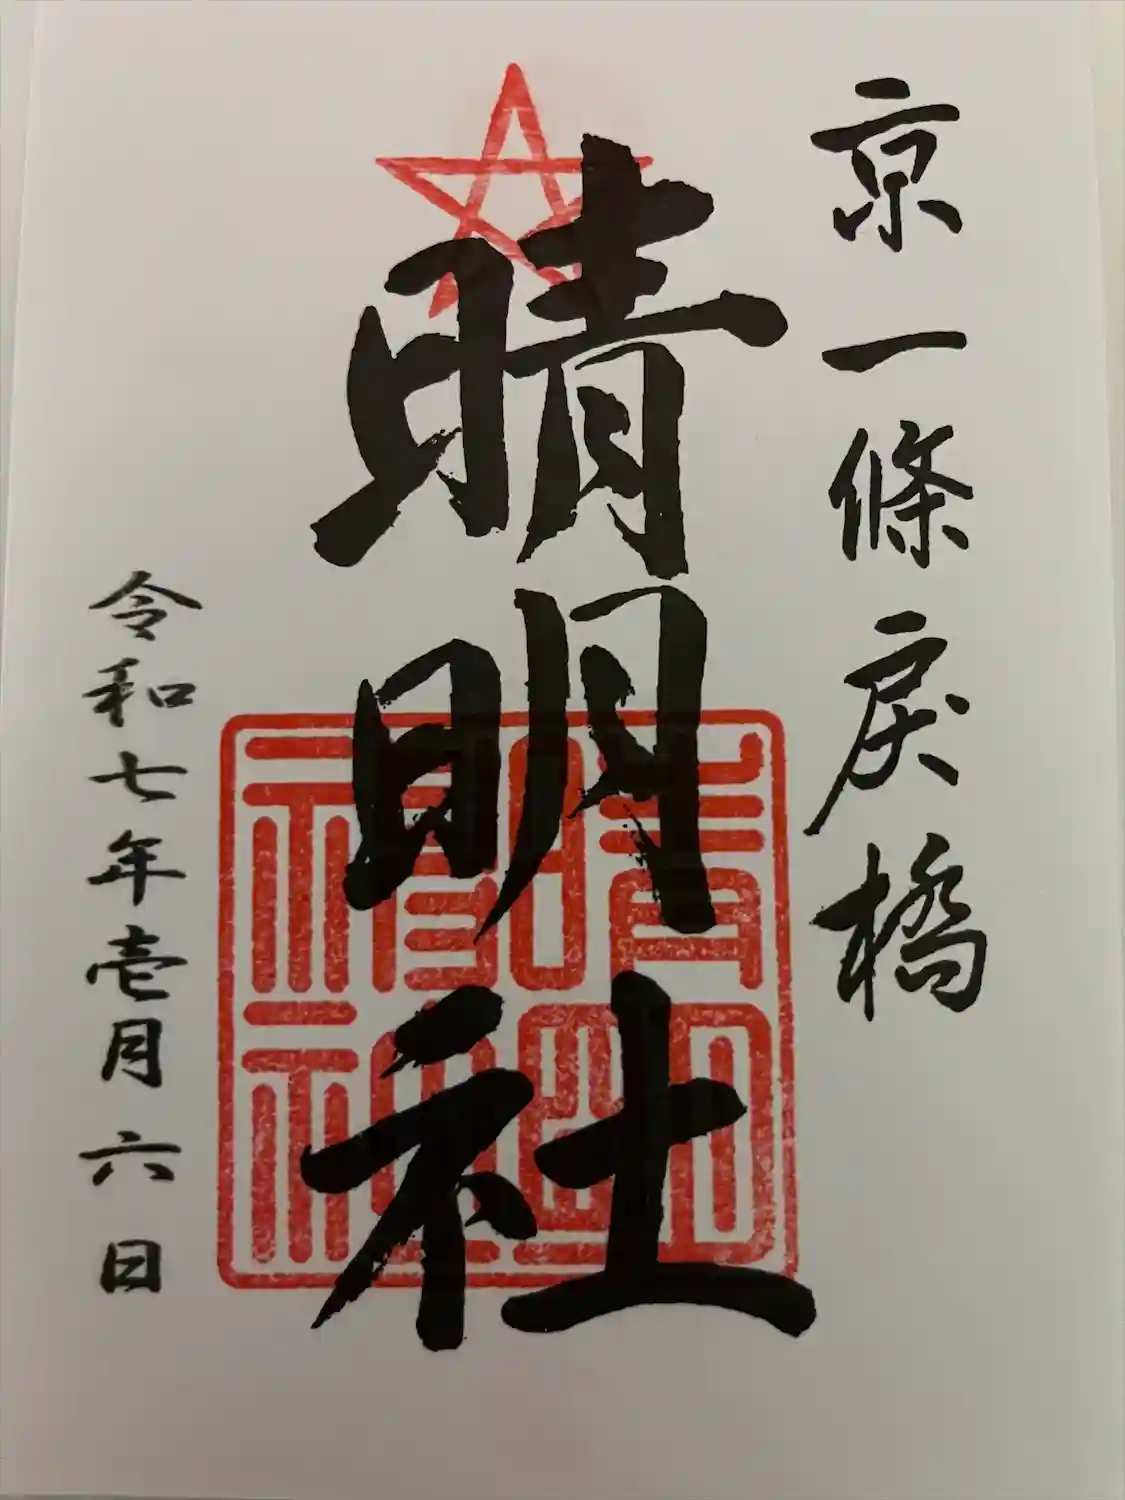 京一條戻橋
晴明社
晴明神社
令和七年壱月六日